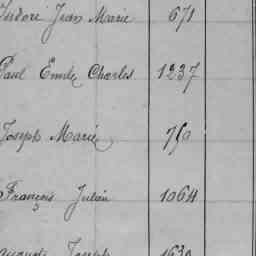 Isidore Jean Marie 671
Paul Emile Charles 1237
Joseph Marie 750
François Julien 1064
Auguste Joseph 1630